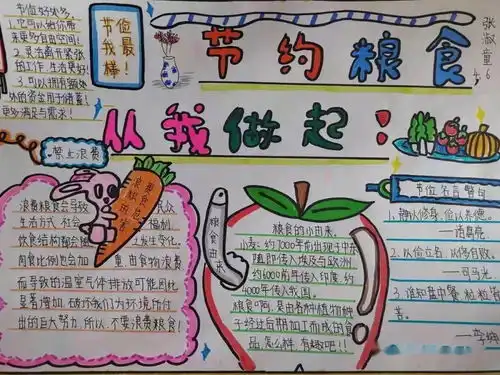 节约粮食
从我做起！
张淑童
6
节俭好处多。
1. 它可以给你带
来更多自由空间！
2. 灵活调节紧张
的工作 生活更好！
3. 可以拥有额外
的资金用于储蓄！
更多满足与需求！
节俭
我最
棒！
禁止浪费
浪费粮食会导致
民众
生活方式 社会
福利
饮食结构都会随
之发生变化。
肉食比例也会加
重 由食物浪费
而导致的温室气体排放可能因此
显著增加 破坏我们为环境所付
出的巨大努力，所以，不要浪费粮食！
粮食由来
粮食的小由来。
小麦：约7000年前出现于中东
随即传入埃及与欧洲
约6000前年传入印度，约
4000年传入我国。
粮食啊，是由各种植物种
子经过后期加工而成的食
品 怎么样 有趣吧！！
节俭名言警句
1. 静以修身 俭以养德
—诸葛亮
2. 以俭立名 从侈自败
—司马光
3. 谁知盘中餐 粒粒皆辛
苦。